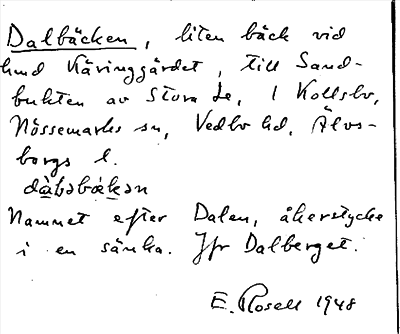 Dalbäcken, liten bäck vid
hmd Käringgärdet, till Sand-
bukten av Stora Le, i Kollsbo,
Nössemarks sn, Vedbo hd, Älvs-
borgs l.
dàbəbækən
Namnet efter Dalen, åkerstycke
i en sänka. Jfr Dalberget.
E. Rosell 1948